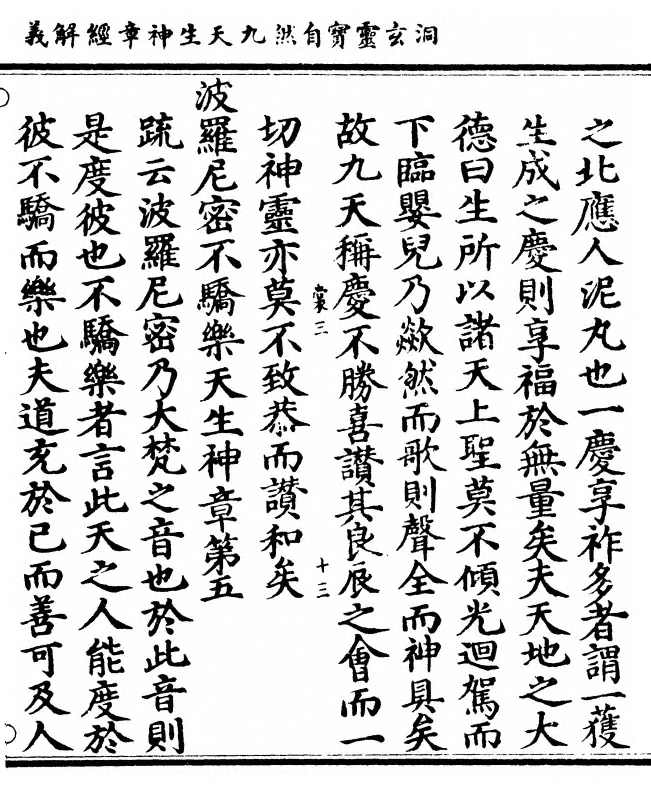 洞玄靈寶自然九天生神章經解義
之北應人泥丸也一慶享祚多者謂一獲
生成之慶則享福於無量矣夫天地之大
德曰生所以諸天上聖莫不傾光迴駕而
下臨嬰兒乃歘然而歌則聲全而神具矣
故九天稱慶不勝喜讚其良辰之會而一
裳三
十三
切神靈亦莫不致恭而讃和矣
波羅尼密不驕樂天生神章第五
疏云波羅尼密乃大梵之音也於此音則
是度彼也不驕樂者言此天之人能度於
彼不驕而樂也夫道充於己而善可及人